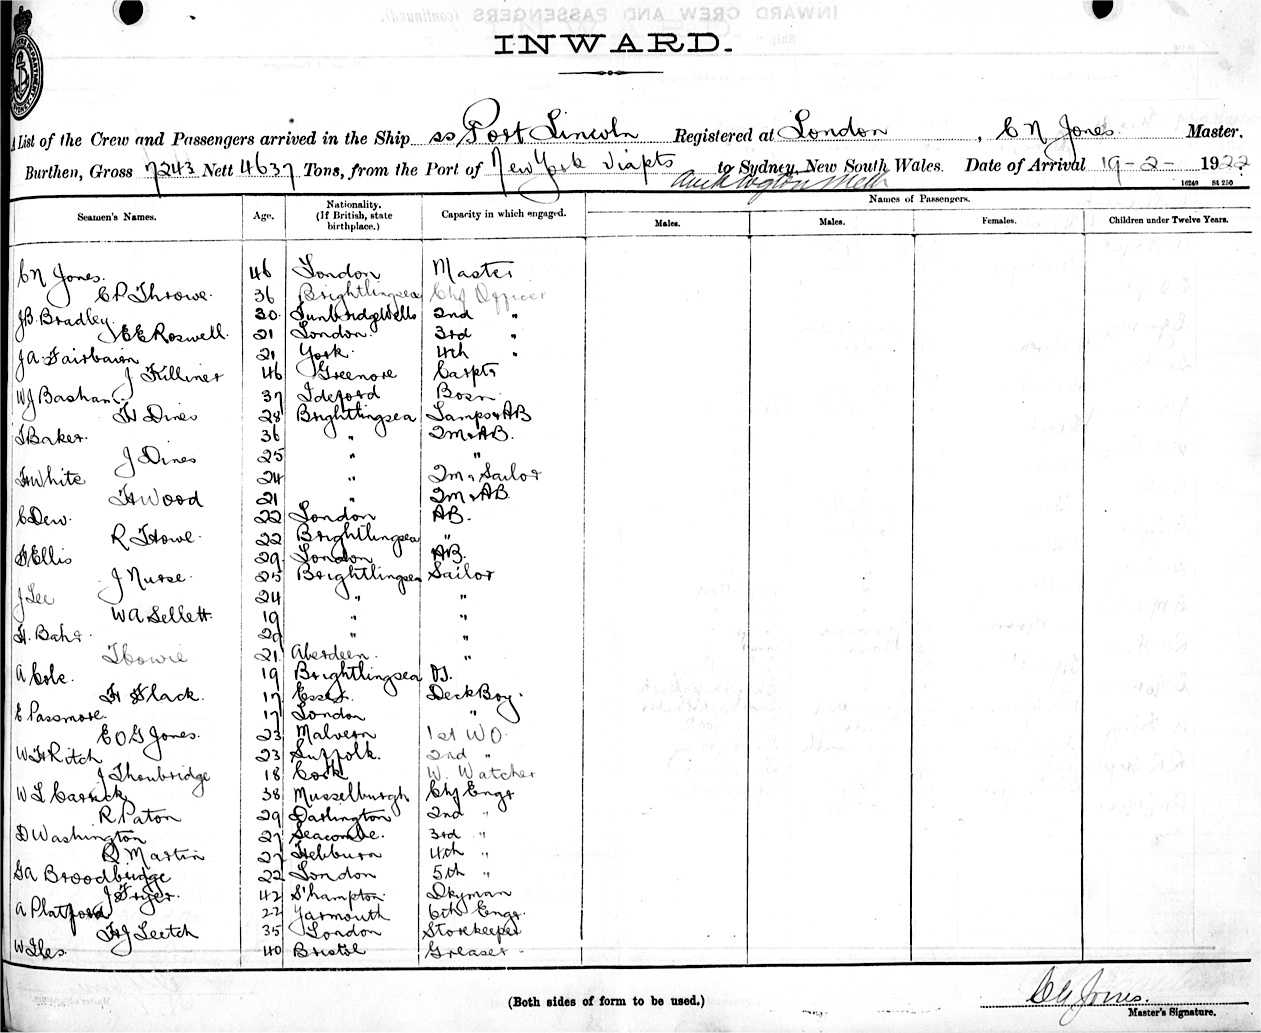 INWARD.
List of the Crew and Passengers arrived in the Ship ss Port Lincoln Registered at London, C N Jones Master,
Burthen, Gross 7243 Nett 4637 Tons, from the Port of New York via pts to Sydney, New South Wales. Date of Arrival 19-2-1922
16240 84 250
Seamen's Names. Age. Nationality. (If British, state birthplace.) Capacity in which engaged. Names of Passengers.
Males. Males. Females. Children under Twelve Years.
C N Jones. 46 London Master
C P Throwe. 36 Brightlingsea Chf Officer
J B. Bradley. 30 Tunbridge Wells 2nd "
E E Roswell. 21 London. 3rd "
J A Fairbairn 21 York. 4th "
J Killiner 46 Greenore Carptr
W J Basham. 37 Ideford Bosn.
H Dines 28 Brightlingsea Lamps & AB
Baker. 36 " 2M & AB.
J Dines 25 " "
H White 24 " 2M & Sailor
H Wood 21 " 2M & AB
C Dew. 22 London AB.
R Howe. 22 Brightlingsea "
Ellis 29 London AB.
J Nurse. 25 Brightlingsea Sailor
J Lee 24 " "
W A Sellett. 19 " "
H. " "
21 Aberdeen. "
A Cole. 19 Brightlingsea OS.
H Flack. 17 Essex. Deck Boy.
E Passmore. 17 London "
E O G Jones. 23 Malvern 1st WO.
W H Ritch 23 Suffolk. 2nd "
J 18 Cork W. Watcher
W L Carrick 38 Musselburgh Chf Engr
R Paton 29 Darlington 2nd "
D Washington 27 Seacombe. 3rd "
R Martin 27 Hebburn 4th "
G A Broodbridge 22 London 5th "
J Fryer. 42 S'hampton Dkyman
A Platford 22 Yarmouth 6th Engr.
H J Leetch 35 London Storekeeper
W Iles. 40 Bristol Greaser.
(Both sides of form to be used.)
C N Jones.
Master's Signature.